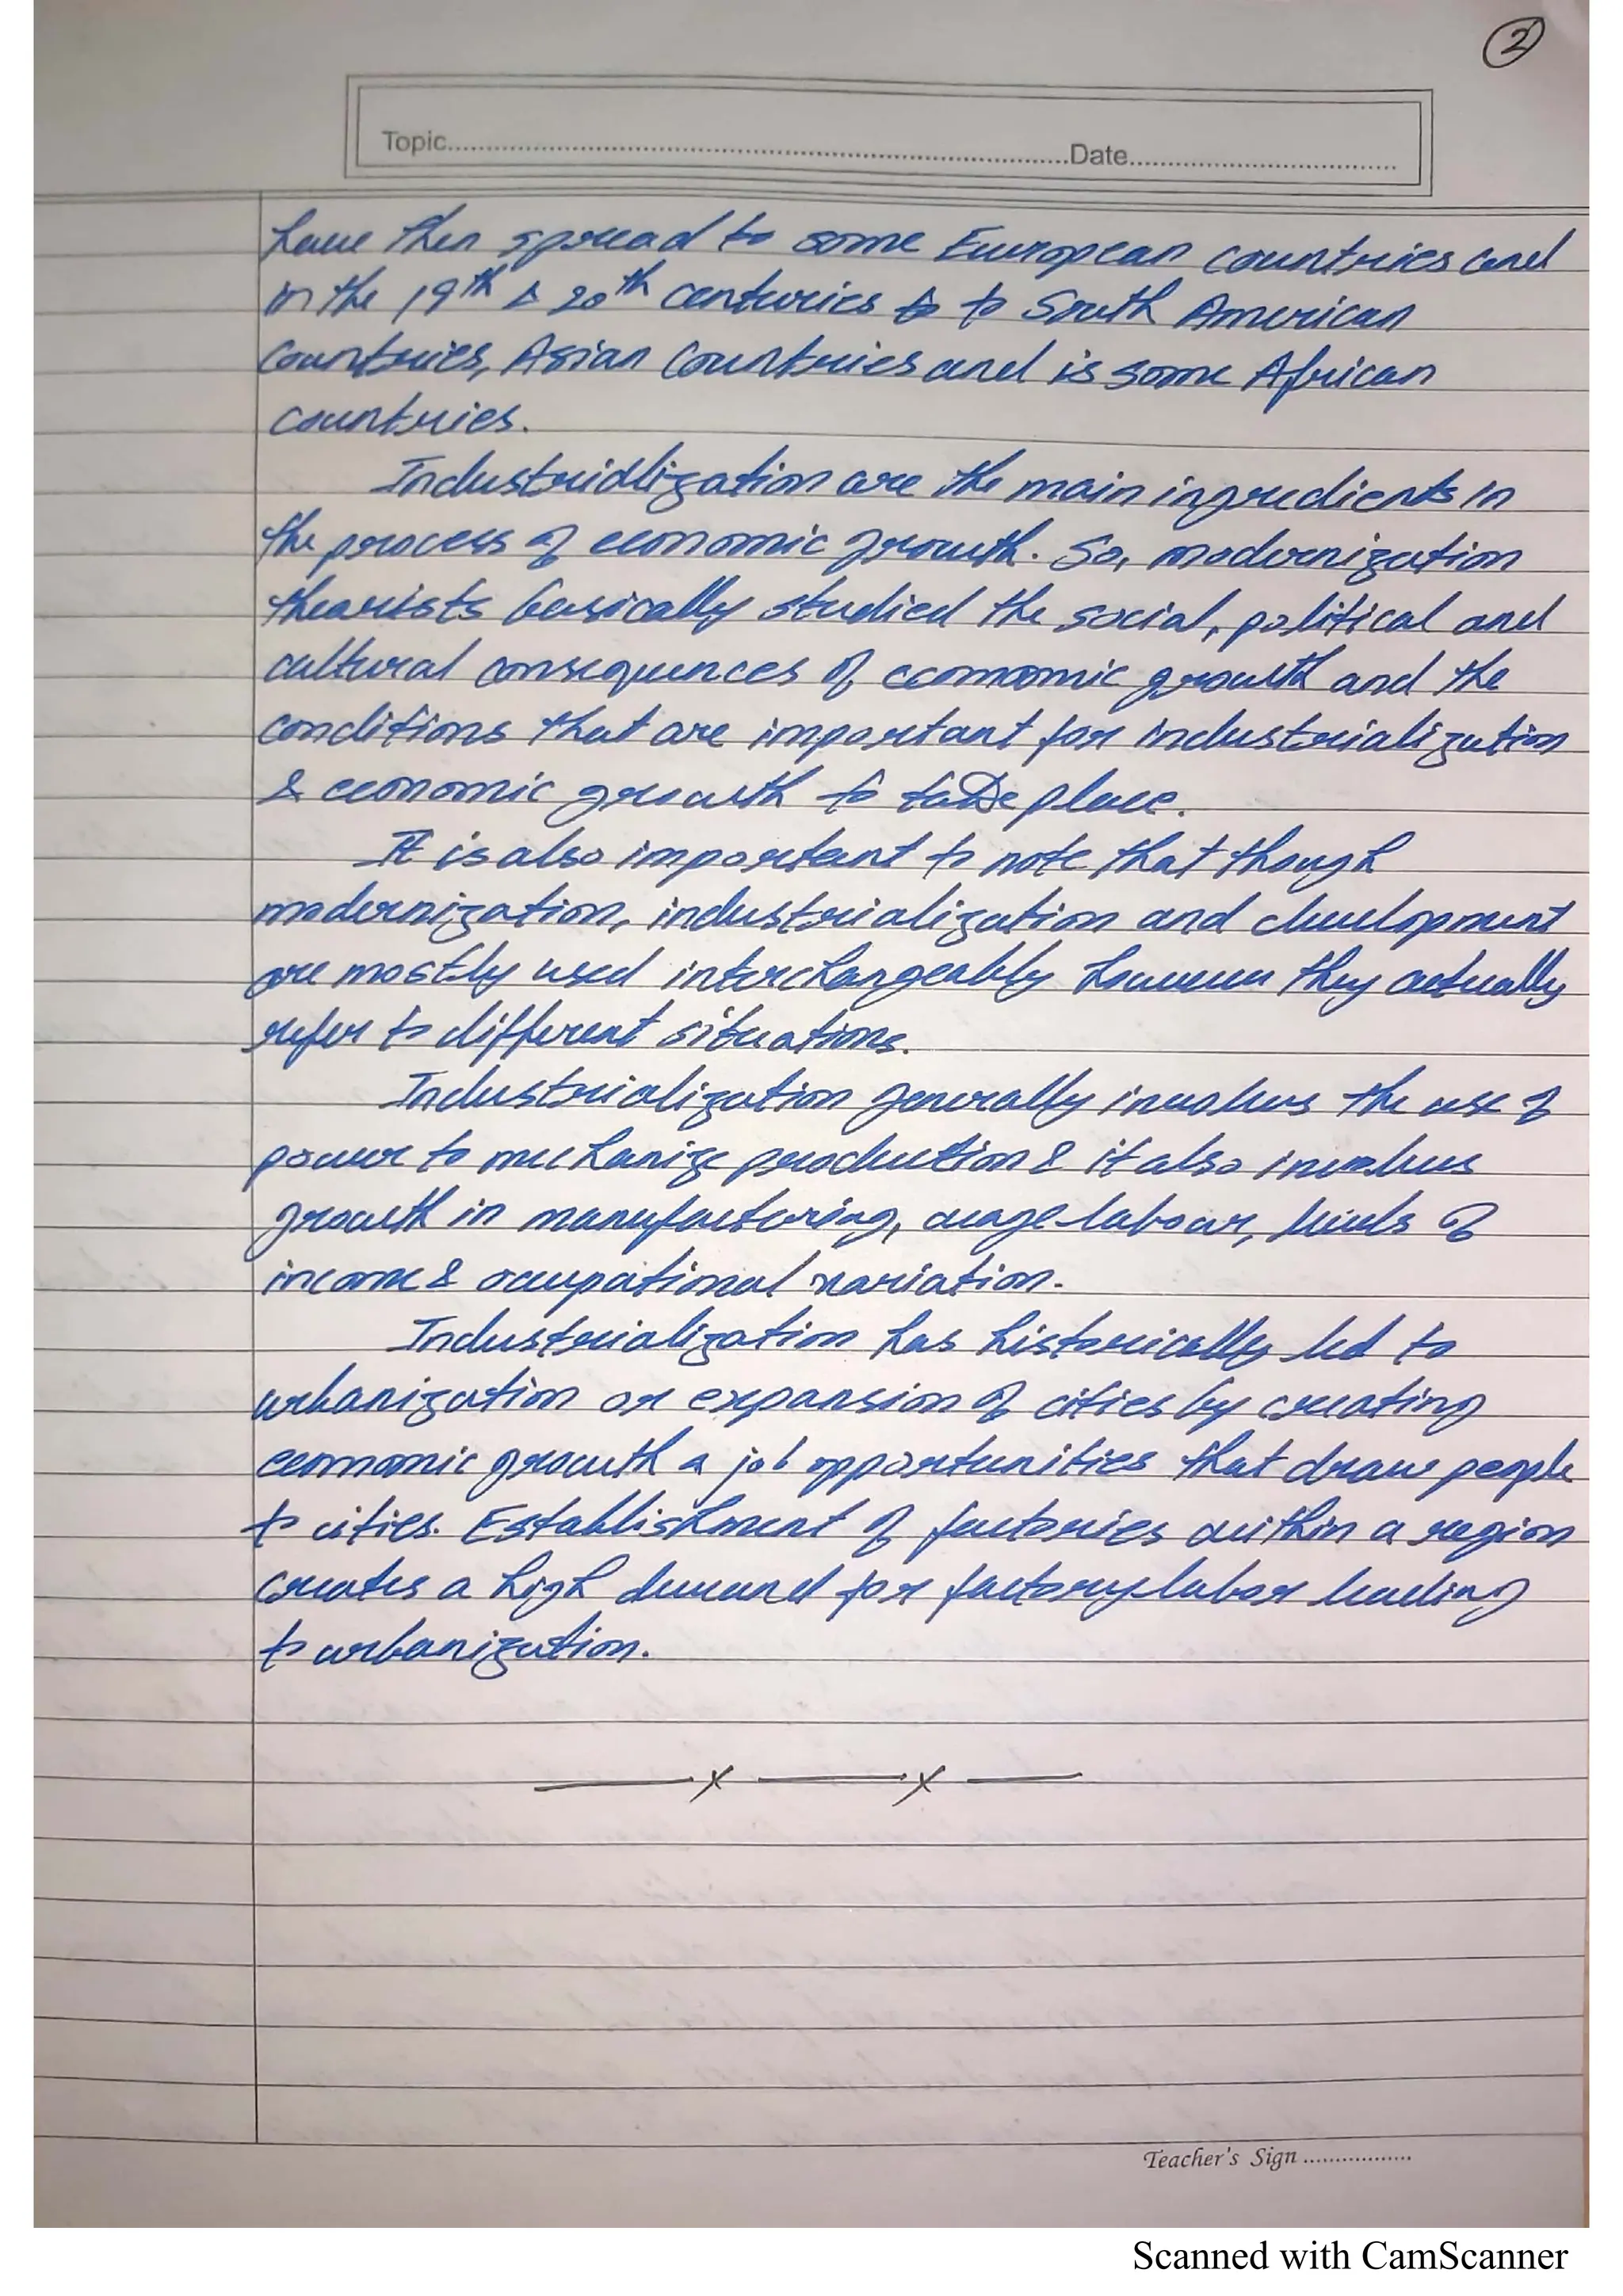 2
Topic.....................Date.....................
have then spread to some European countries and
in the 19th & 20th centuries to to South American
countries, Asian Countries and is some African
countries.
Industrialization are the main ingredients in
the process of economic growth. So, modernization
thearists basically studied the social, political and
cultural consequences of economic growth and the
conditions that are important for industrialization
& economic growth to take place.
It is also important to note that though
modernization, industrialization and development
are mostly used interchangeably however they actually
refer to different situations.
Industrialization generally involves the use of
power to mechanize production & it also involves
growth in manufacturing, wage labour, levels of
income & occupational variation.
Industrialization has historically led to
urbanization or expansion of cities by creating
economic growth & job opportunities that draw people
to cities. Establishment of factories within a region
creates a high demand for factory labor leading
to urbanization.
Teacher's Sign ..................
Scanned with CamScanner